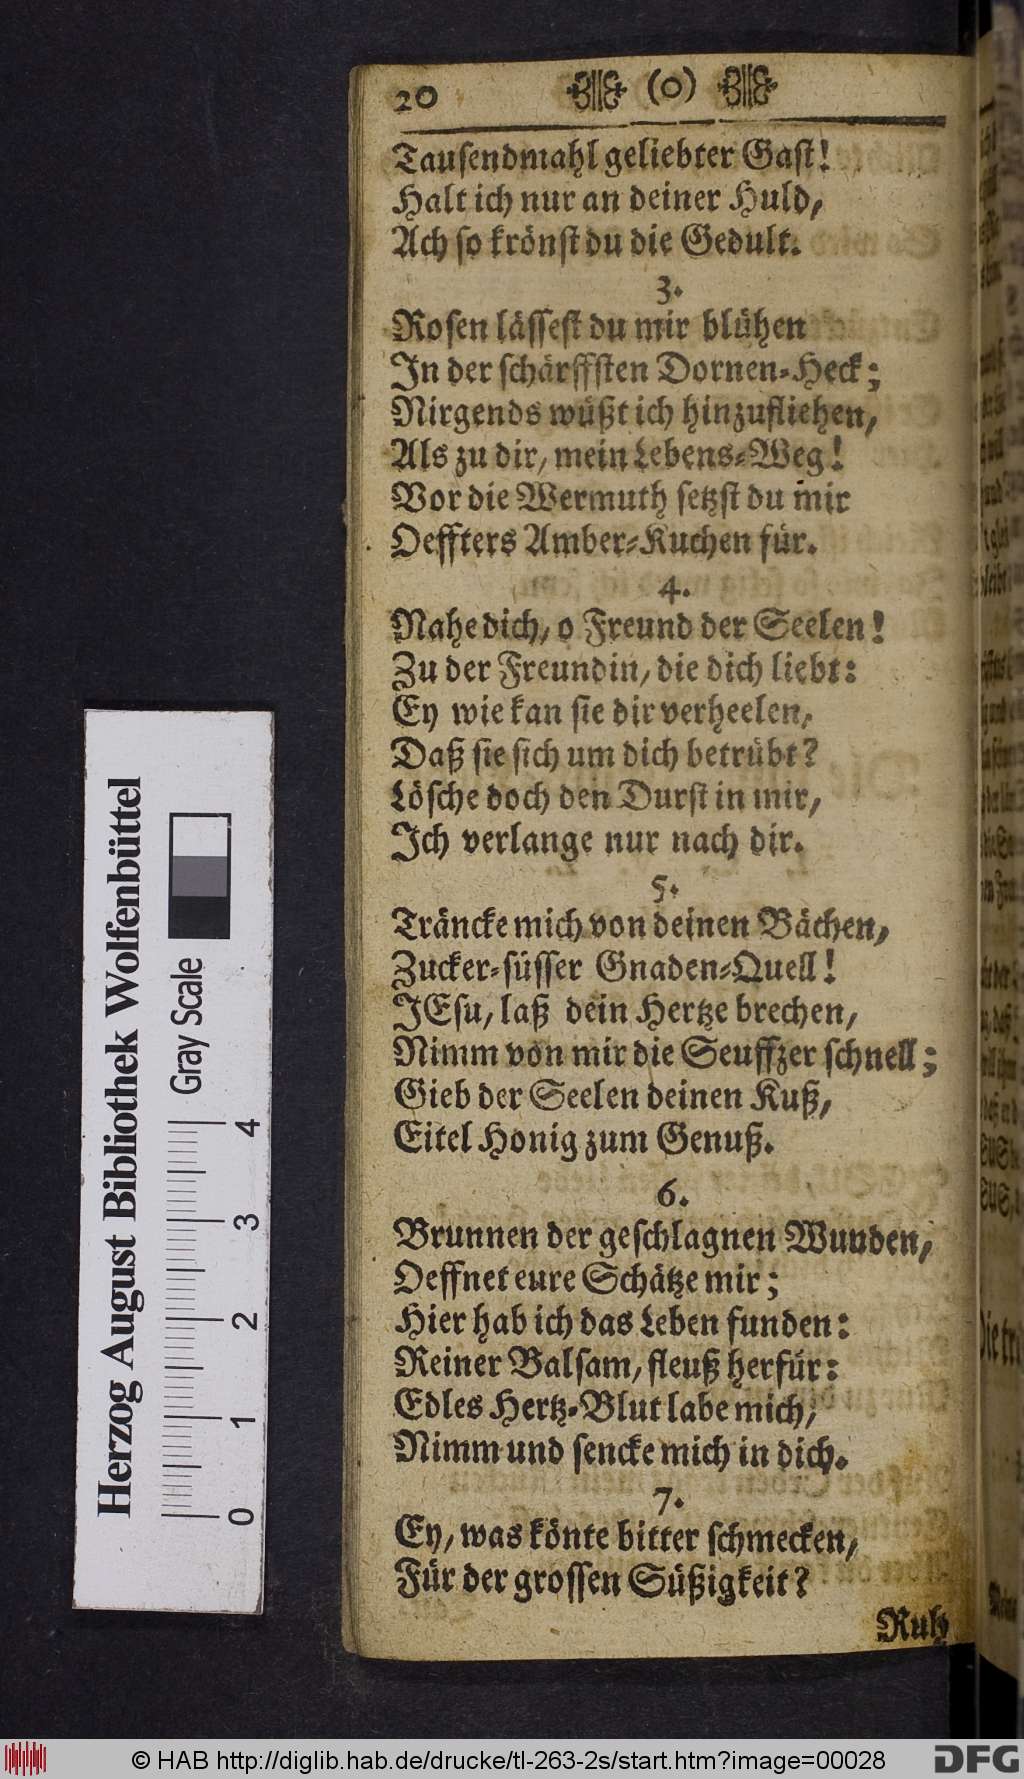 20 (0)
Tausendmahl geliebter Gast!
Halt ich nur an deiner Huld,
Ach so krönst du die Gedult.
3.
Rosen lässest du mir blühen
In der schärffsten Dornen-Heck;
Nirgends wüßt ich hinzufliehen,
Als zu dir, mein Lebens-Weg!
Vor die Wermuth setzst du mir
Oeffters Amber-Kuchen für.
4.
Nahe dich, o Freund der Seelen!
Zu der Freundin, die dich liebt:
Ey wie kan sie dir verheelen,
Daß sie sich um dich betrübt?
Lösche doch den Durst in mir,
Ich verlange nur nach dir.
5.
Träncke mich von deinen Bächen,
Zucker-süsser Gnaden-Quell!
JEsu, laß dein Hertze brechen,
Nimm von mir die Seuffzer schnell;
Gieb der Seelen deinen Kuß,
Eitel Honig zum Genuß.
6.
Brunnen der geschlagnen Wunden,
Oeffnet eure Schätze mir;
Hier hab ich das Leben funden:
Reiner Balsam, fleuß herfür:
Edles Hertz-Blut labe mich,
Nimm und sencke mich in dich.
7.
Ey, was könte bitter schmecken,
Für der grossen Süßigkeit?
Ruh
Herzog August Bibliothek Wolfenbüttel
Gray Scale
0 1 2 3 4
© HAB http://diglib.hab.de/drucke/tl-263-2s/start.htm?image=00028
DFG